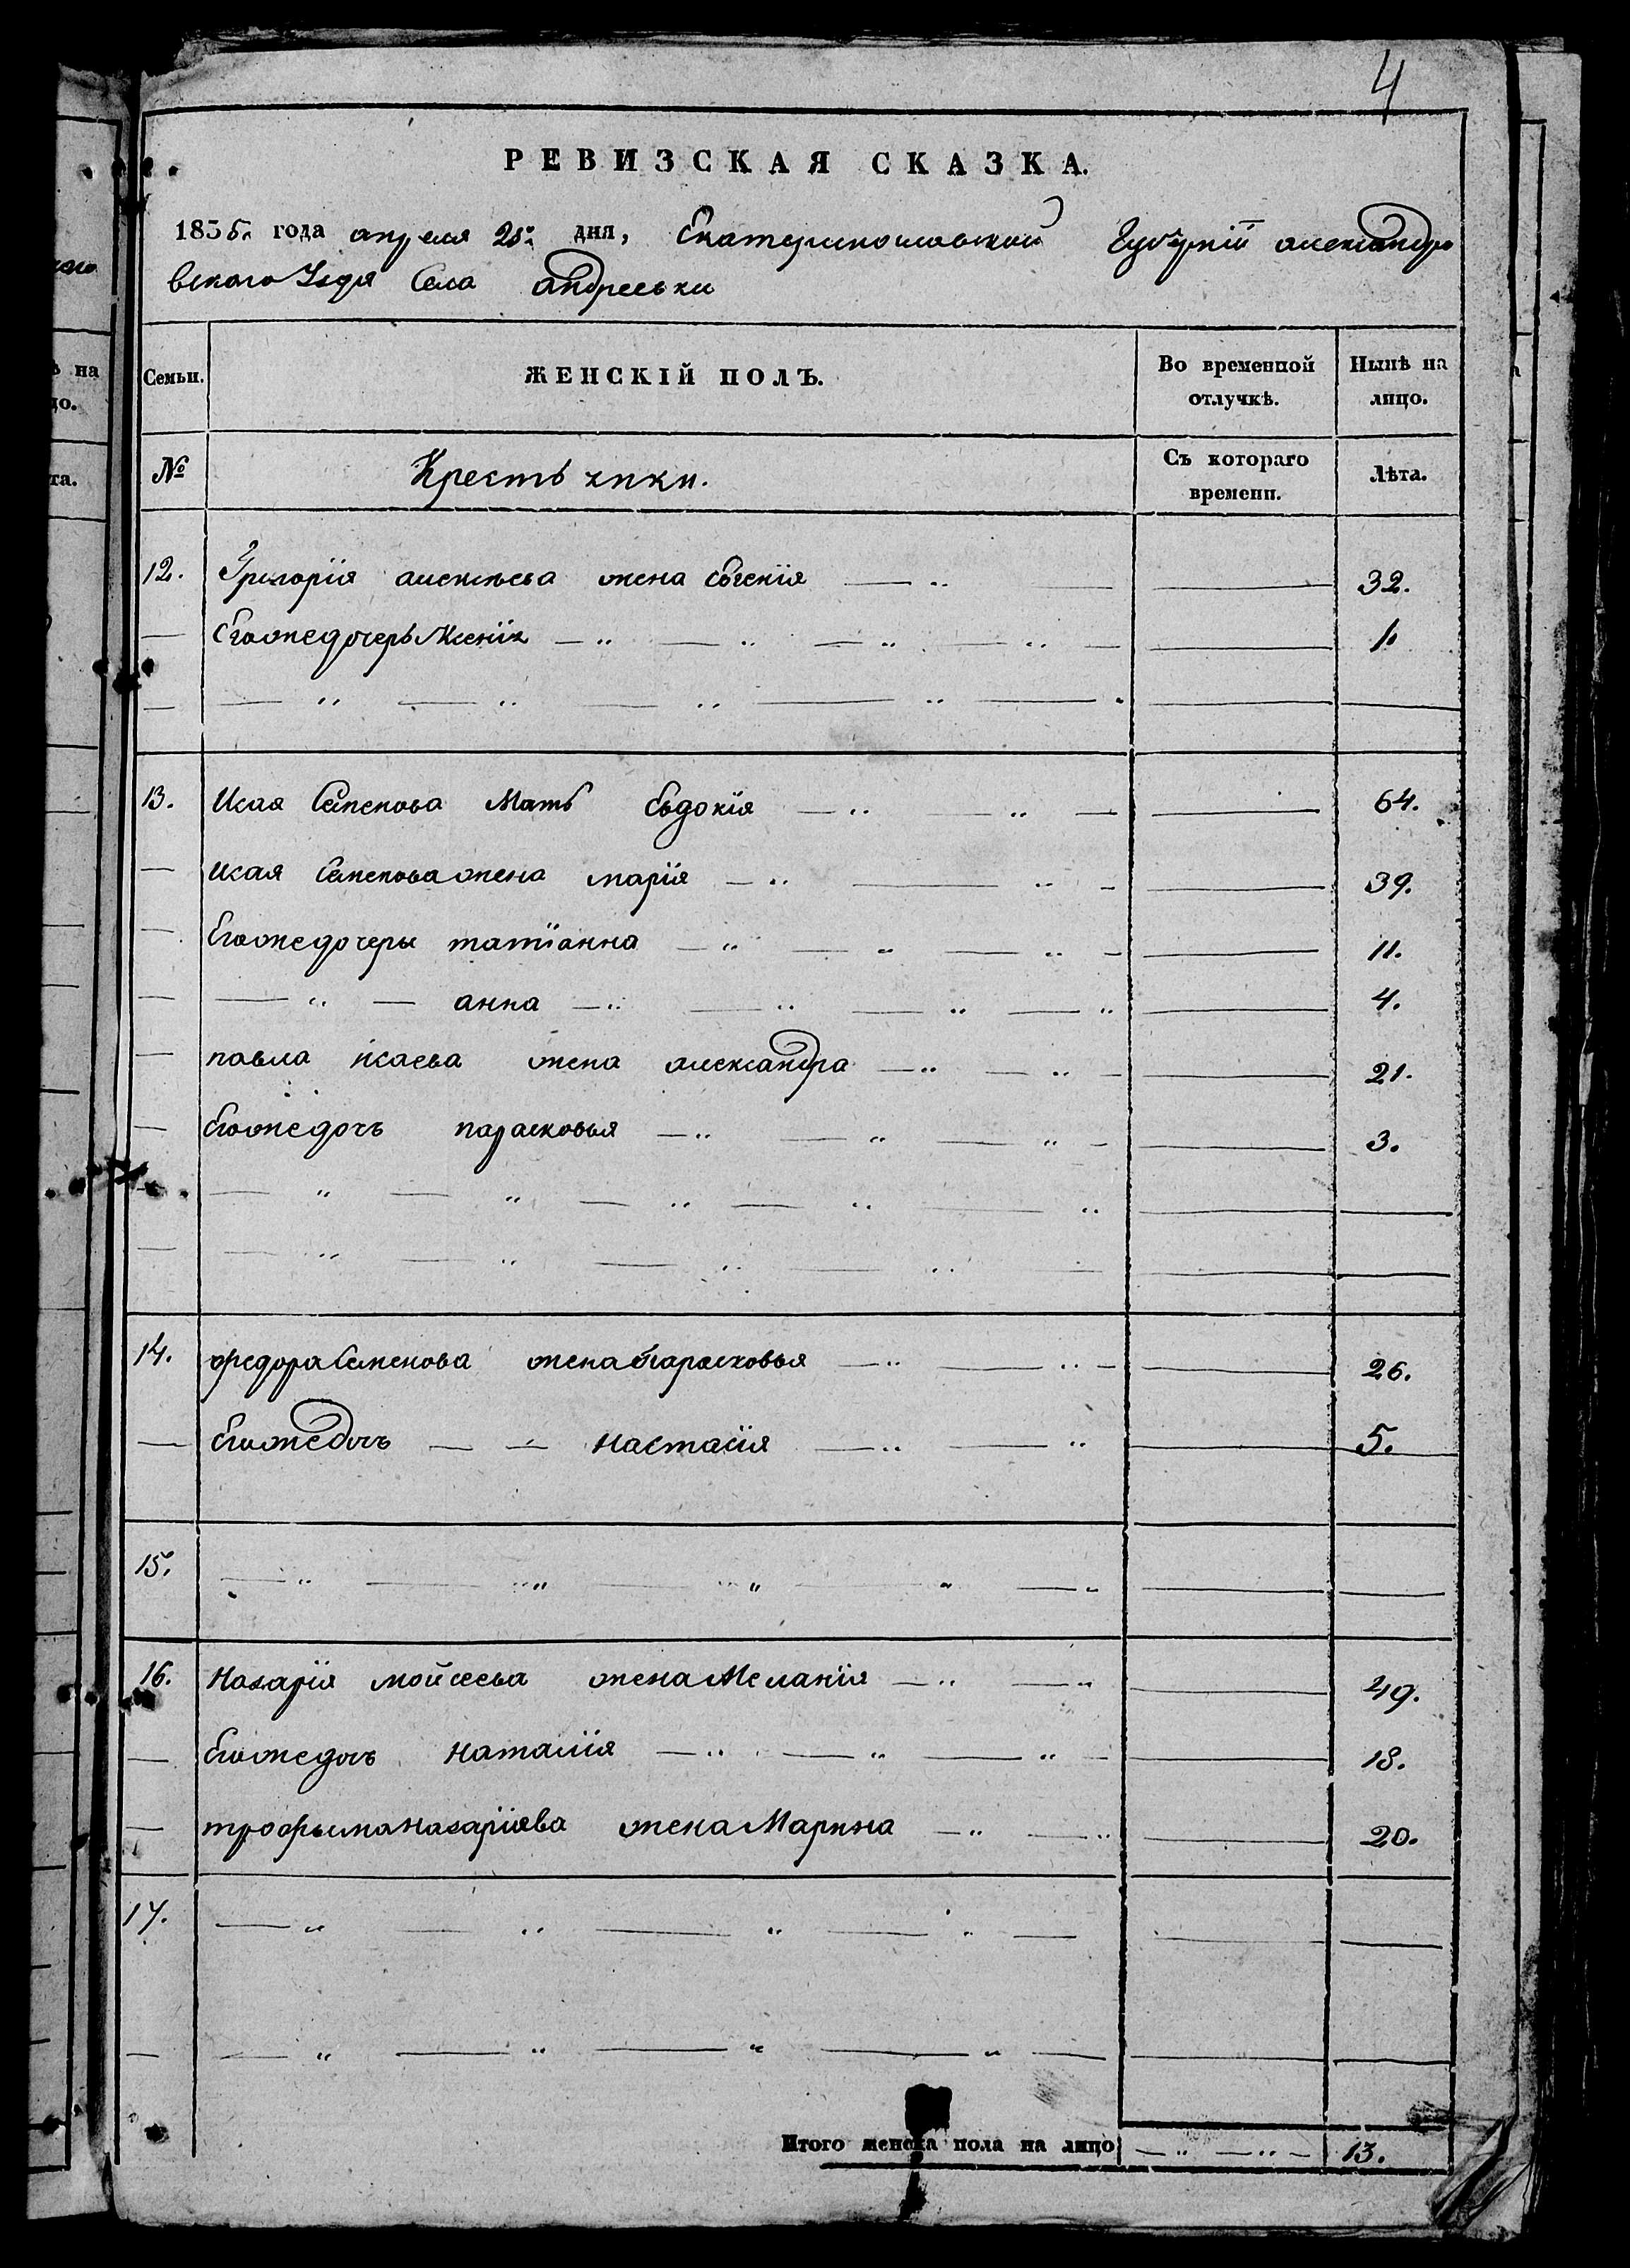 4
РЕВИЗСКАЯ СКАЗКА.
1835 года апреля 25 дня, Екатеринославской Губерніи александро
вского Уезда Села андреевки
Семьи. ЖЕНСКІЙ ПОЛЪ. Во временной отлучкѣ. Нынѣ на лицо.
№ Крестьянки. Съ котораго времени. Лѣта.
12. Григорія алексѣева жена Евгенія 32.
Егожедочерь Ксенія 1
13. Исая Семенова Мать Евдокія 64.
Исая Семенова жена марія 39.
Егожедочеры татіанна 11.
анна 4.
павла исаева жена александра 21.
Егожедочъ парасковья 3.
14. федора Семенова жена парасковья 26.
Егожедочъ настасія 5.
15.
16. назарія мойсеева жена Меланія 49.
Егожедочъ наталія 18.
трофыма назаріева жена Марина 20.
17.
Итого женска пола на лицо 13.